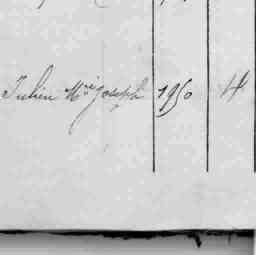 Julien Mie Joseph 1950 4